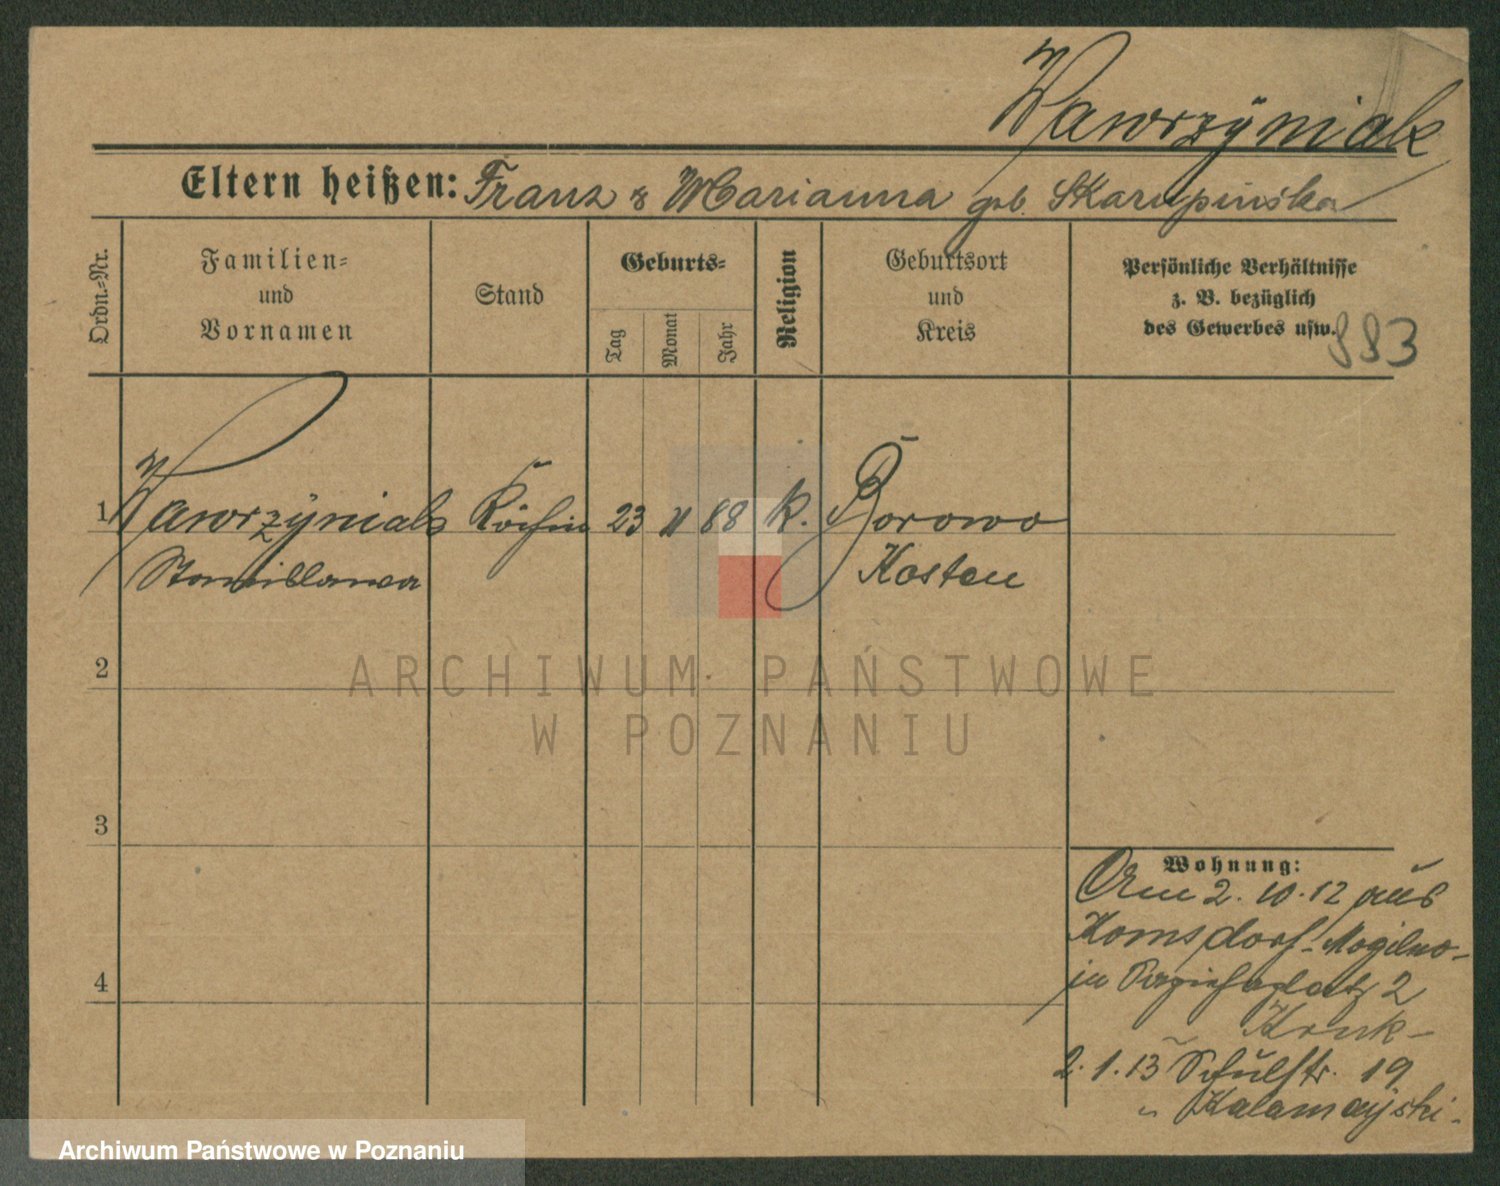 Wawrzÿniak
Eltern heißen: Franz & Marianna geb. Skarupinśka
Ordn.-Nr.
Familien-
und
Vornamen
Stand
Geburts-
Tag
Monat
Jahr
Religion
Geburtsort
und
Kreis
Persönliche Verhältnisse
z. B. bezüglich
des Gewerbes usw.
883
1 Wawrzÿniak Köchin 23 11 88 k. Borowo
Stanisława Kosten
2
3
4
Wohnung:
Am 2. 10. 12 aus
Komsdorf-Mogilno-
in 2
Kruk-
2. 1. 13 Schulstr. 19
" Kalamajski-
ARCHIWUM PAŃSTWOWE
W POZNANIU
Archiwum Państwowe w Poznaniu